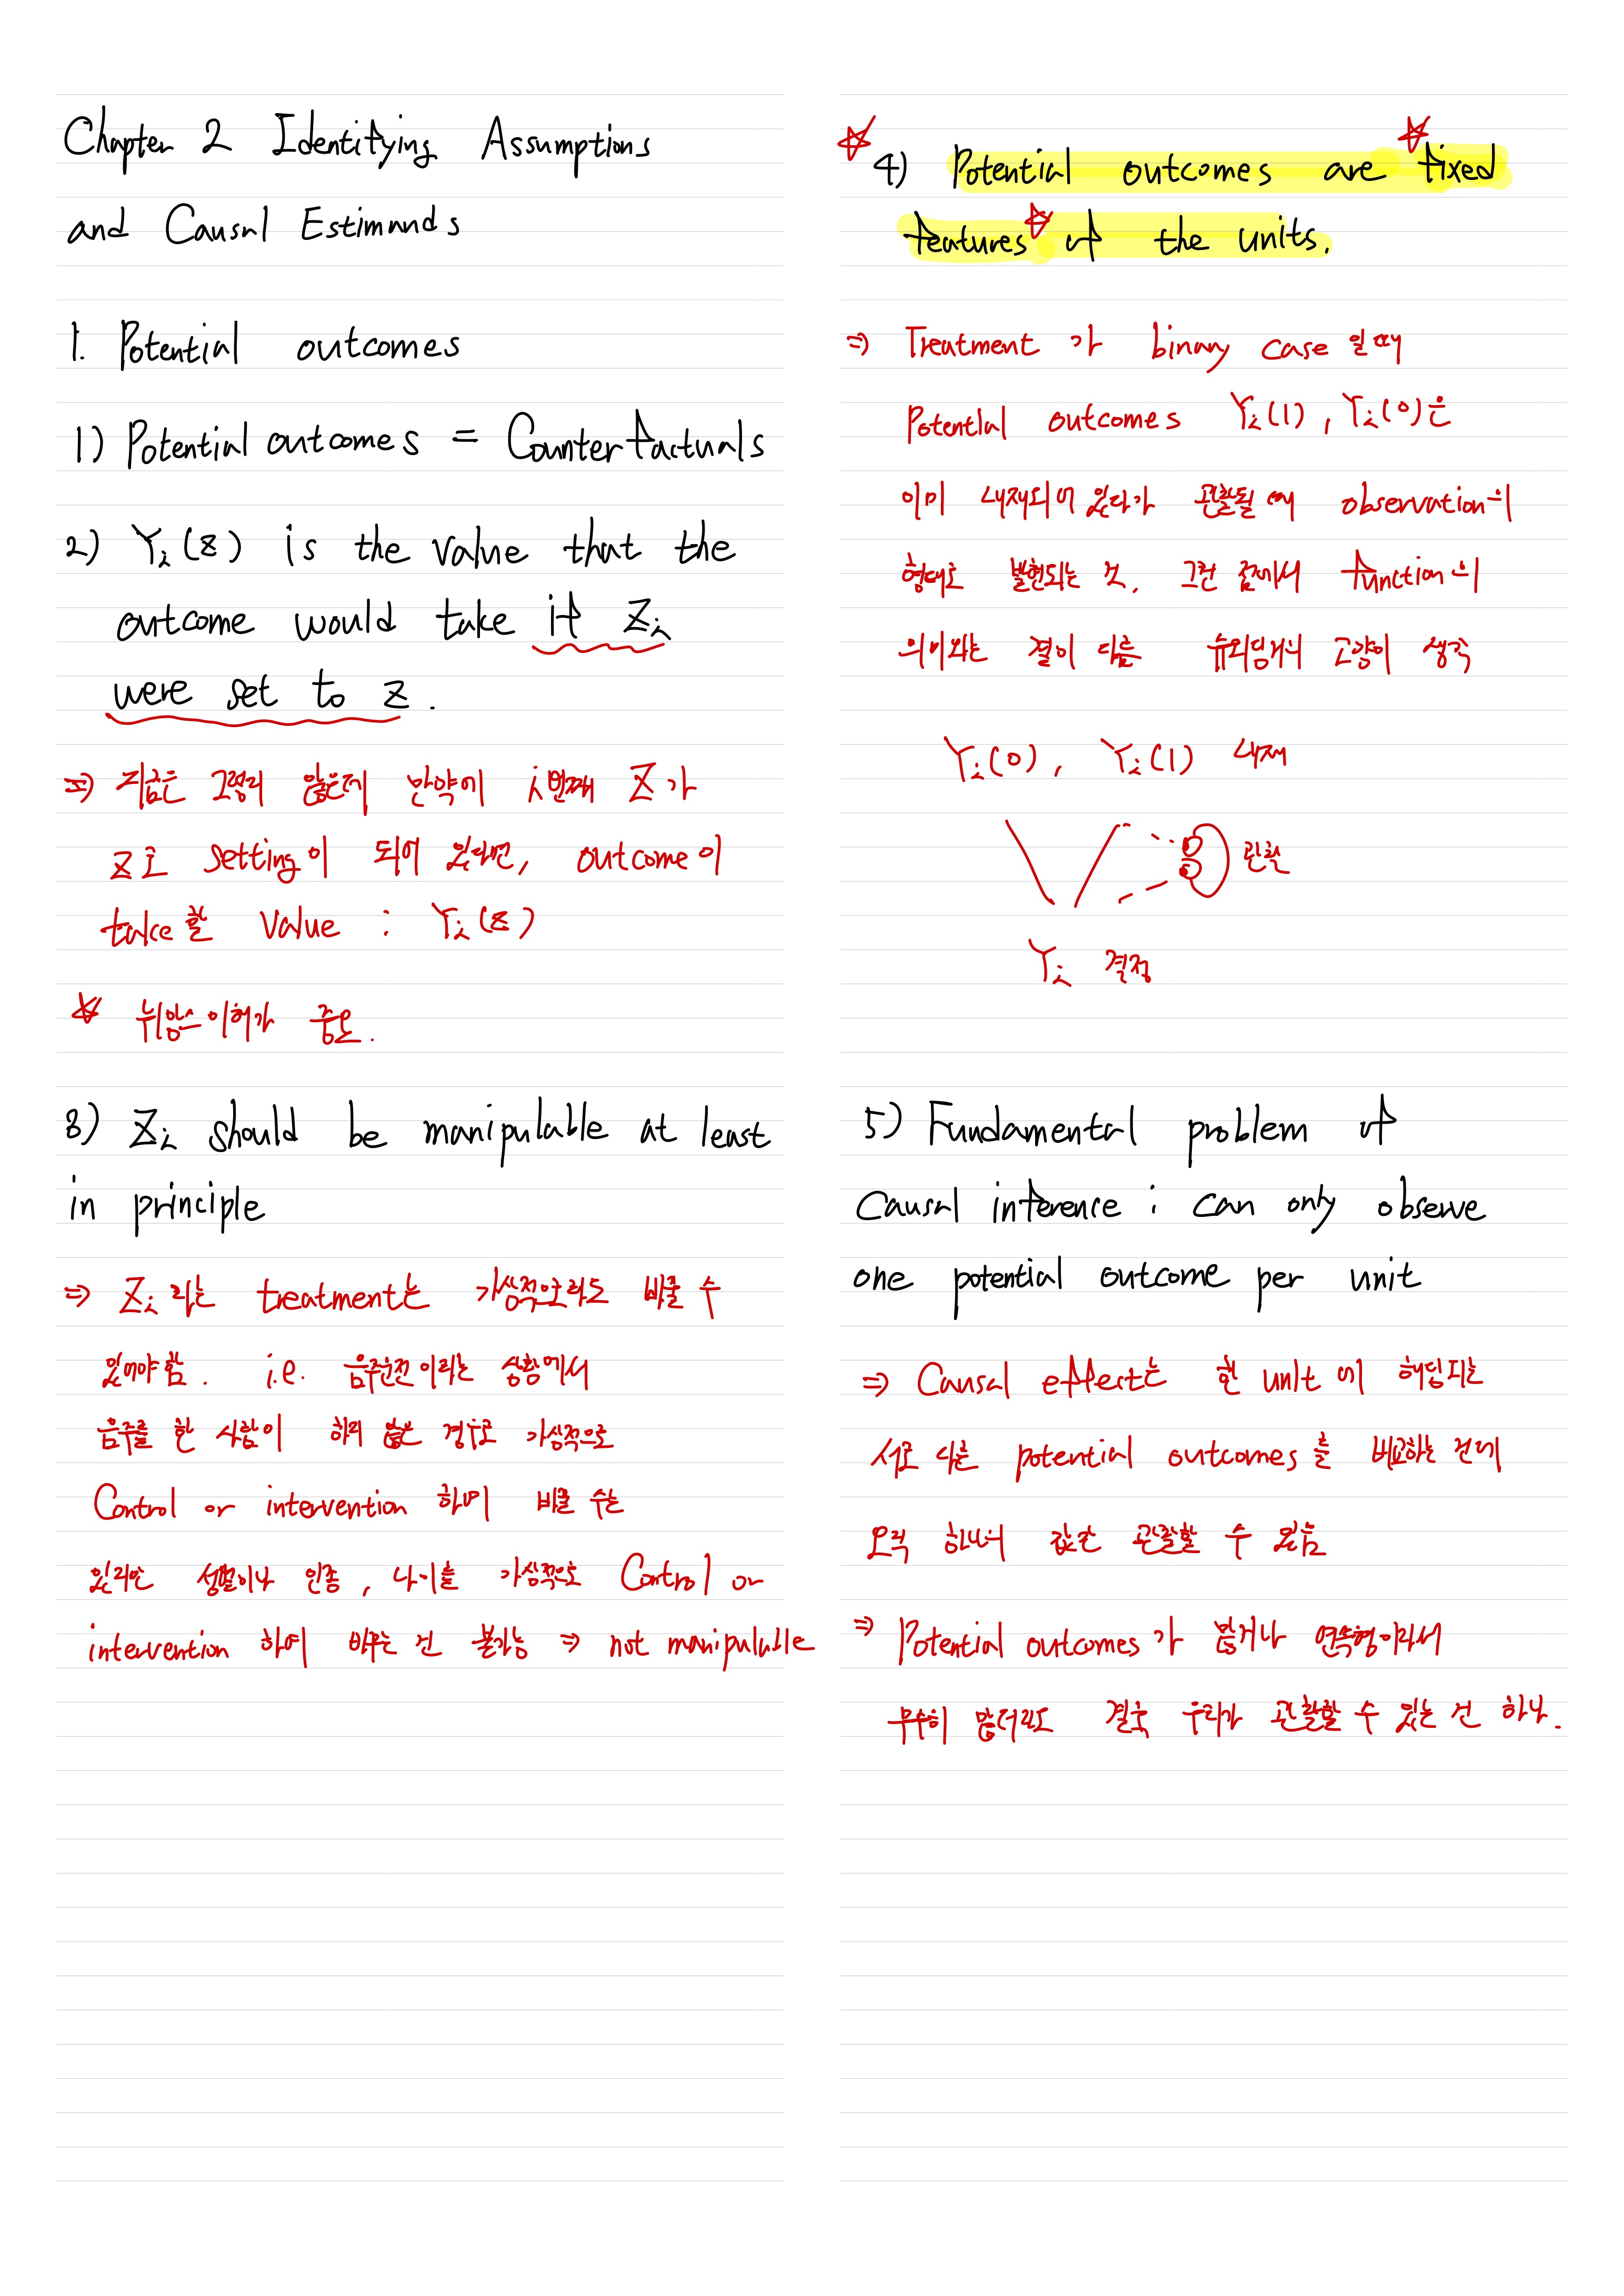 Chapter 2 Identifying Assumptions
and Causal Estimands
1. Potential outcomes
1) Potential outcomes = Counterfactuals
2) Yi(z) is the value that the
outcome would take if Zi
were set to z.
⇒ 지금은 그렇지 않은데 만약에 i번째 Z가
z로 setting이 되어 있다면, outcome이
take할 value : Yi(z)
☆ 뉘앙스 이해가 중요.
3) Zi should be manipulable at least
in principle
⇒ Zi라는 treatment는 가상적으로라도 바꿀 수
있어야 함. i.e. 음주운전이라는 상황에서
음주를 한 사람이 하지 않은 경우로 가상적으로
Control or intervention 하여 바꿀 수는
있지만 성별이나 인종, 나이를 가상적으로 Control or
intervention 하여 바꾸는 건 불가능 ⇒ not manipulable
☆ 4) Potential outcomes are ☆ fixed
features ☆ of the units.
⇒ Treatment가 binary case일 때
Potential outcomes Yi(1), Yi(0)은
이미 내재되어 있다가 관찰될 때 observation의
형태로 발현되는 것. 그런 점에서 function의
의미와는 결이 다름 슈뢰딩거의 고양이 생각
Yi(0), Yi(1) 내재
관찰
Yi 결정
5) Fundamental problem of
Causal inference : can only observe
one potential outcome per unit
⇒ Causal effect는 한 unit에 해당되는
서로 다른 potential outcomes를 비교하는 건데
오직 하나의 값만 관찰할 수 있음
⇒ Potential outcomes가 많거나 연속형이라서
무수히 많더라도 결국 우리가 관찰할 수 있는 건 하나.